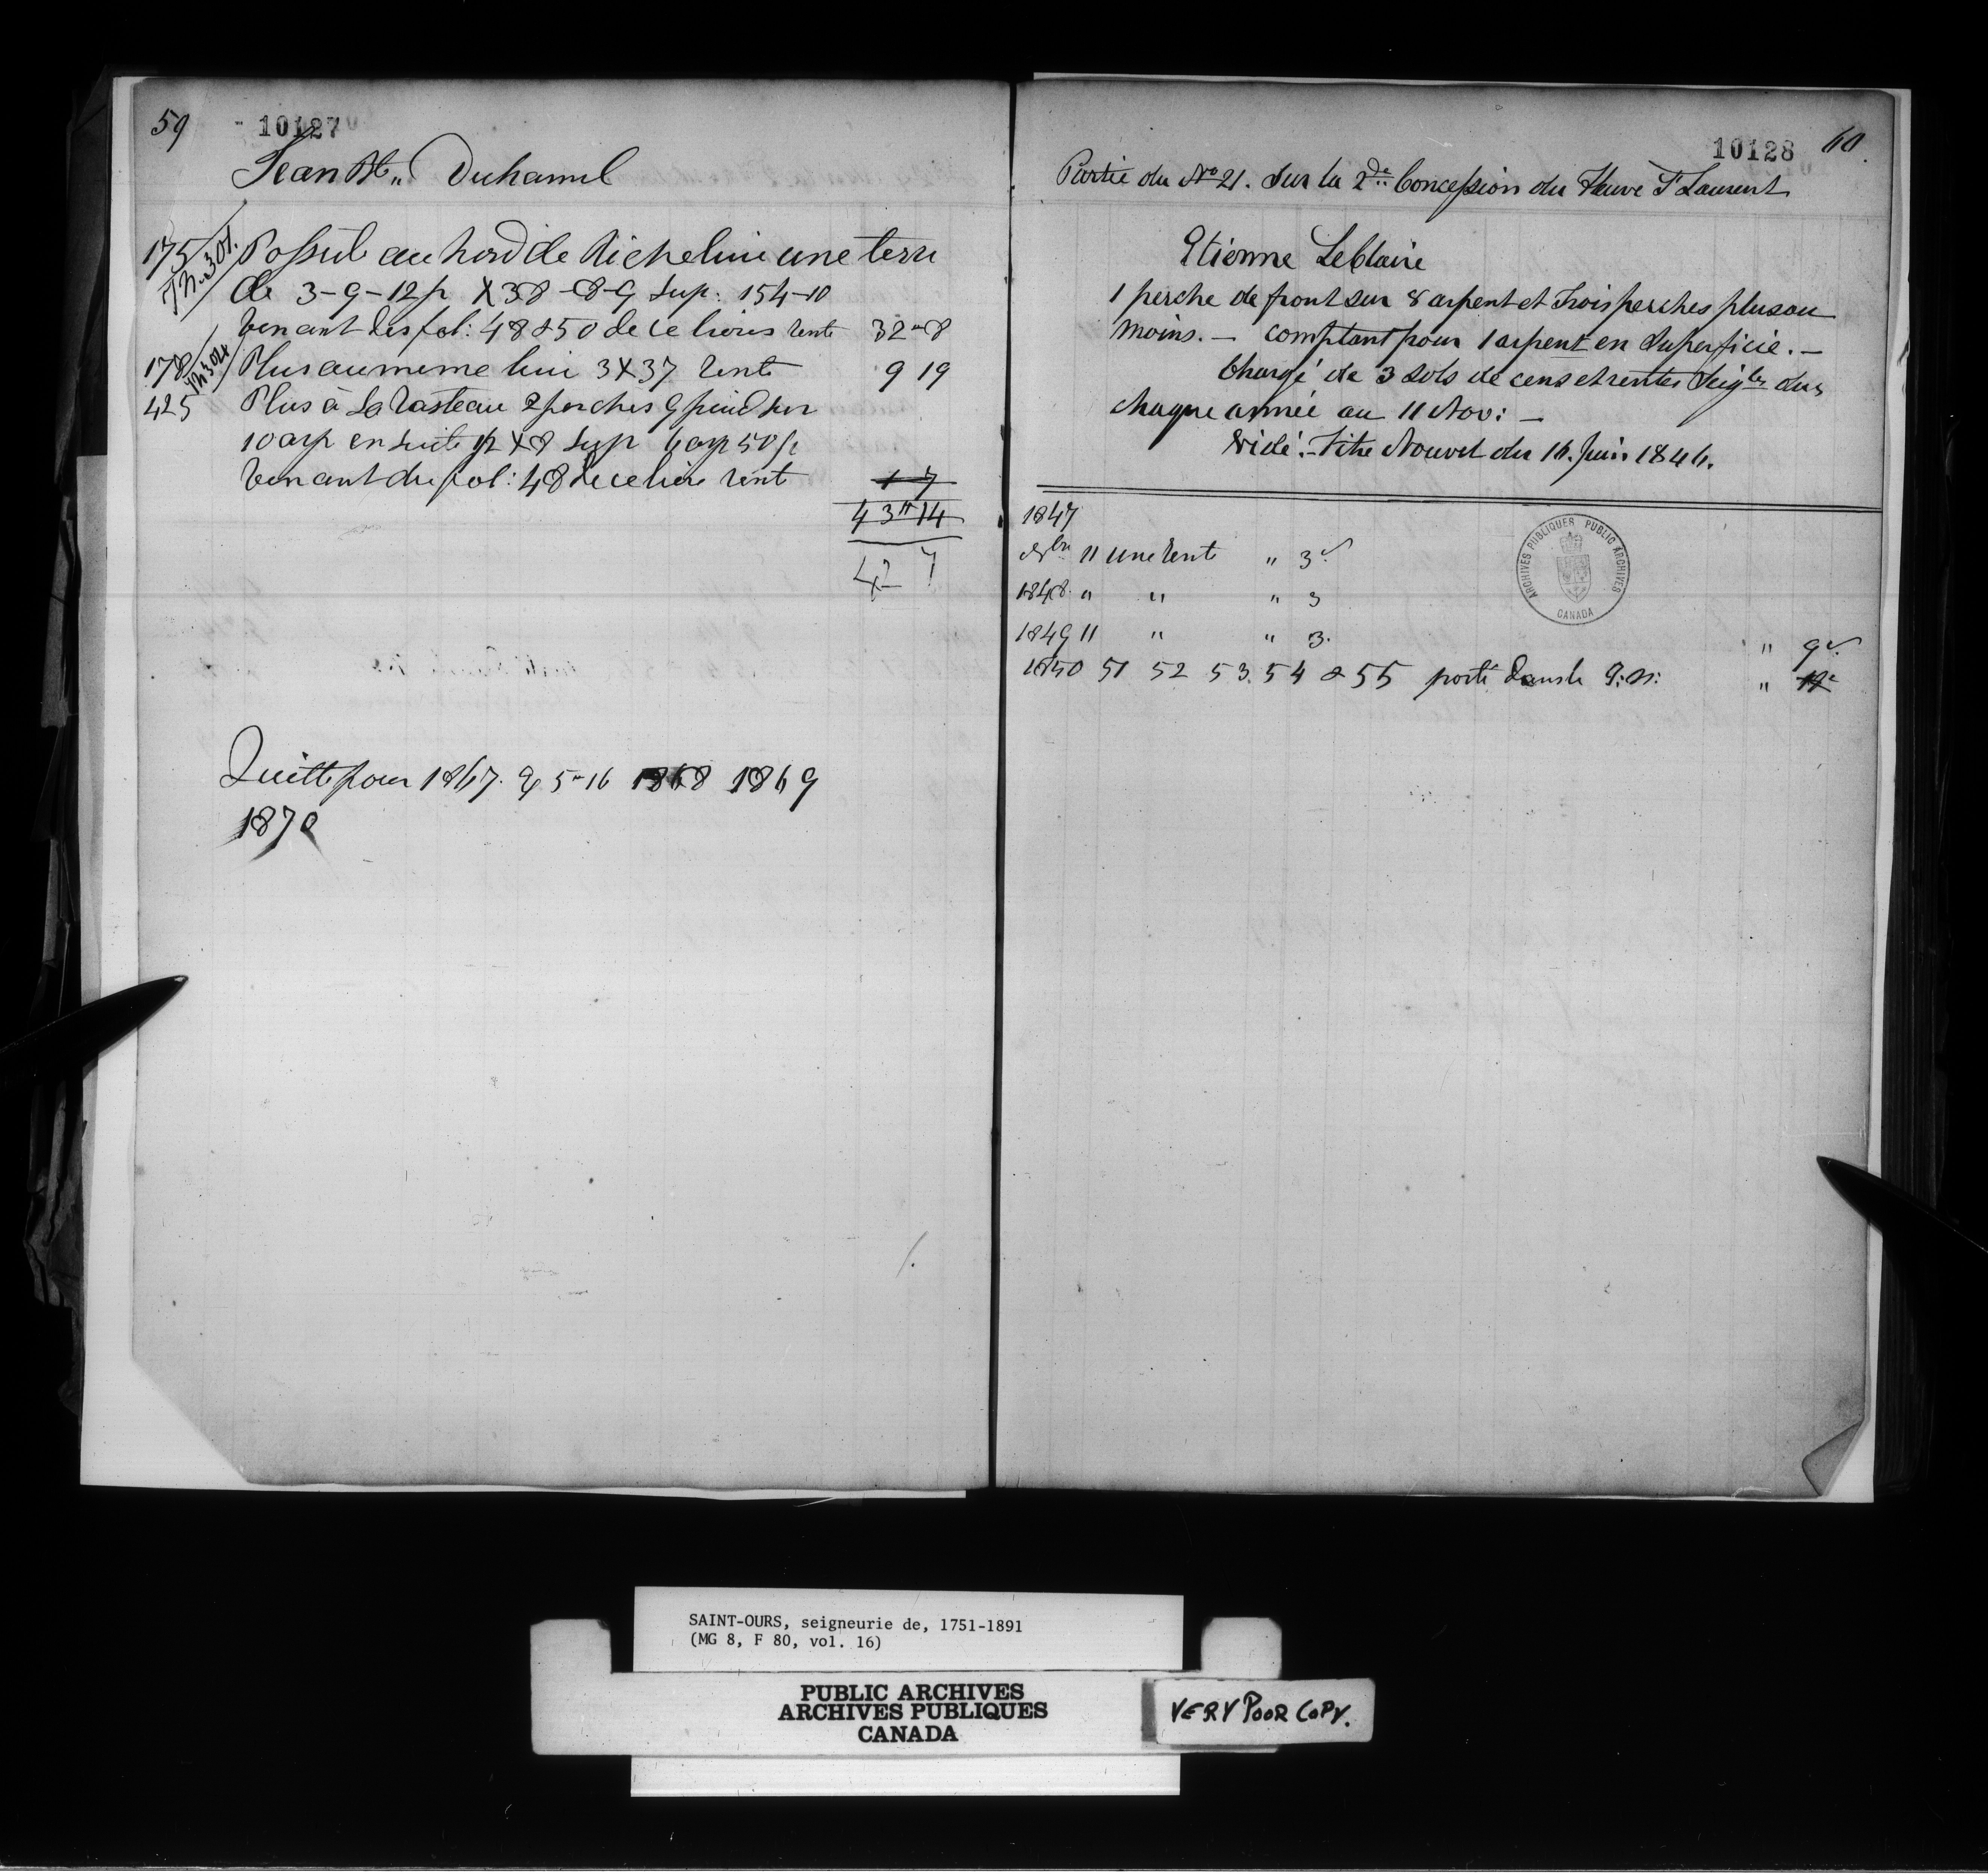 59 10127
Jean Bte „ Duhamel
175 Possède au nord de Richelieu une terre
de 3-9-12p X 38-8-9 Sup: 154-10
Venant des fol: 48 & 50 de ce livres rente 32"8
178 Plus au meme lieu 3X37 rente 9 19
425 Plus à 2 perches 9 pied sur
10 arp en suite 1/2 X 8 Sup 6 arp 50 p
Venant du fol: 48 de ce livre rente 1 7
43"14
42 7
Quitte pour 1867. 5"16 1868 1869
1870
10128 60
Partie du No 21. Sur la 2de Concession du fleuve St Laurent
Etienne Leblaire
1 perche de front sur 8 arpent et trois perches plus ou
moins. — Comptant pour 1 arpent en Superficie. —
Chargé de 3 sols de cens et rentes Seigles dus
chaque année au 11 Nov: —
Vide: Titre Nouvel du 16. Juin 1846.
1847
Nbre 11 une rente " 3
1848. " " " 3
1849 11 " " 3. " 9
1850 51 52 53. 54 & 55 porté dans le G: N: "
ARCHIVES PUBLIQUES PUBLIC ARCHIVES
CANADA
SAINT-OURS, seigneurie de, 1751-1891
(MG 8, F 80, vol. 16)
PUBLIC ARCHIVES
ARCHIVES PUBLIQUES
CANADA
VERY POOR COPY.